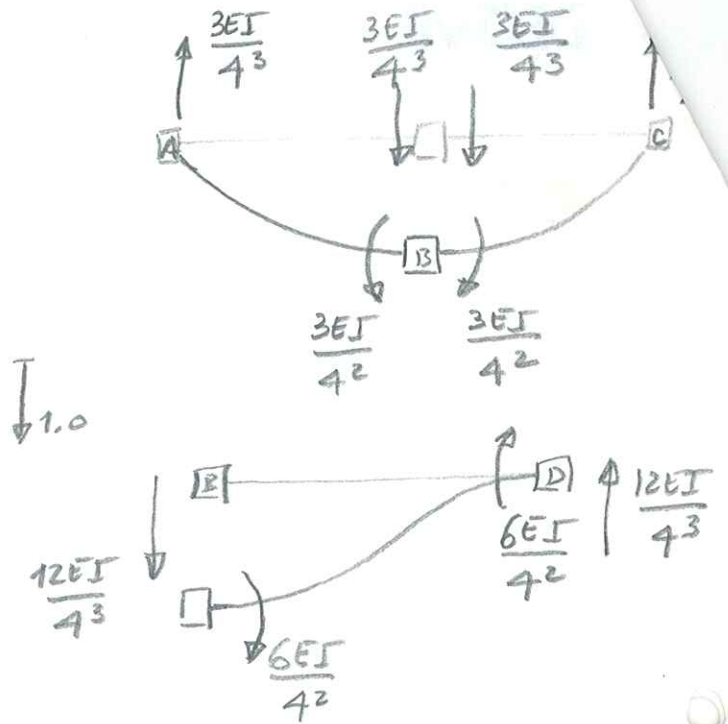 3EI/4³ 3EI/4³ 3EI/4³
A C
B
3EI/4² 3EI/4²
1.0
B D
12EI/4³ 6EI/4² 12EI/4³
6EI/4²